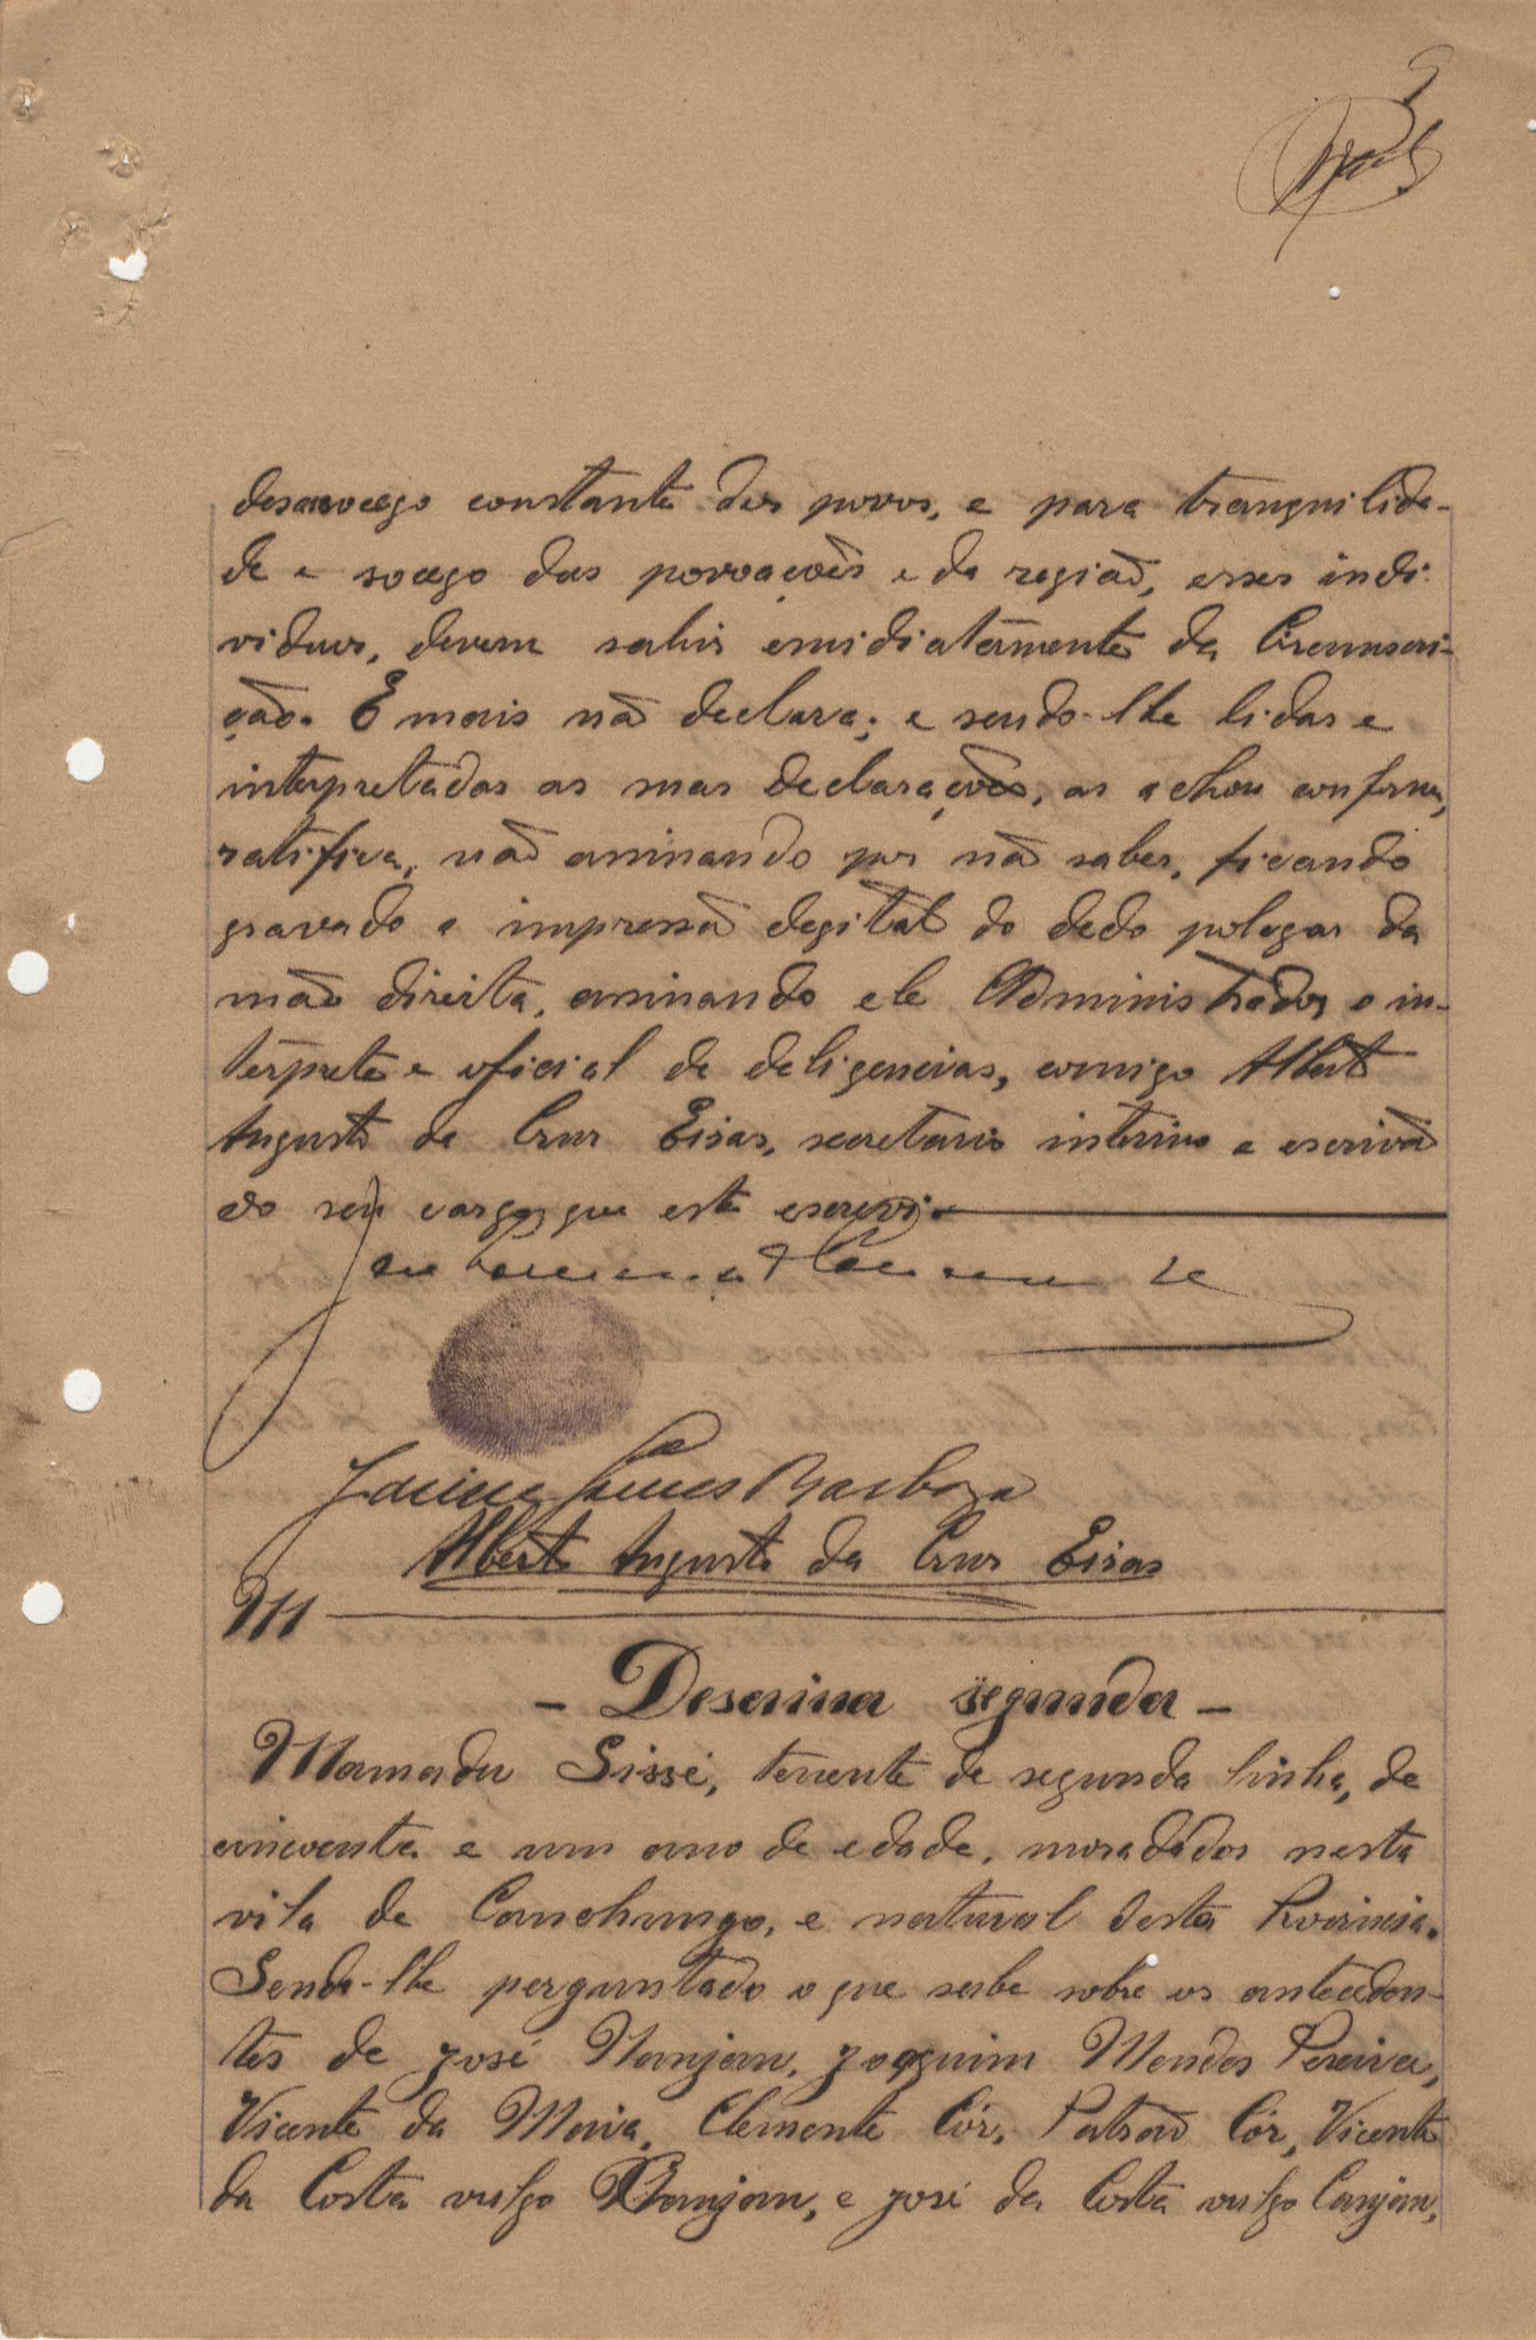 desasocego constante dos povos, e para tranquilida-
de e socego das povoações e da região, esses indi-
viduos, devem sahir emidiatamente da Circunscri-
ção. E mais não declara; e sendo-lhe lidas e
interpretadas as suas declarações, as achou conforme,
ratifica, não assinando por não saber, ficando
gravado a impressão degital do dedo polegar da
mão direita, assinando ele Administrador o in-
terprete e oficial de deligencias, comigo Alberto
Augusto da Cruz Eiras, secretario interino e escrivão
do seu cargo, que este escrevi.
Barboza
Alberto Augusto da Cruz Eiras
M
- Descrissa segunda -
Mamadu Sissé, tenente de segunda linha, de
cincoenta e um ano de edade, morador nesta
vila de Canchungo, e natural desta Provincia.
Sendo-lhe perguntado o que sabe sobre os anteceden-
tes de José Nanjan, Joaquim Mendes Pereira,
Vicente da Maia, Clemente Cór, Patrão Cór, Vicente
da Costa vulgo Banjan, e José da Costa vulgo Canjan,